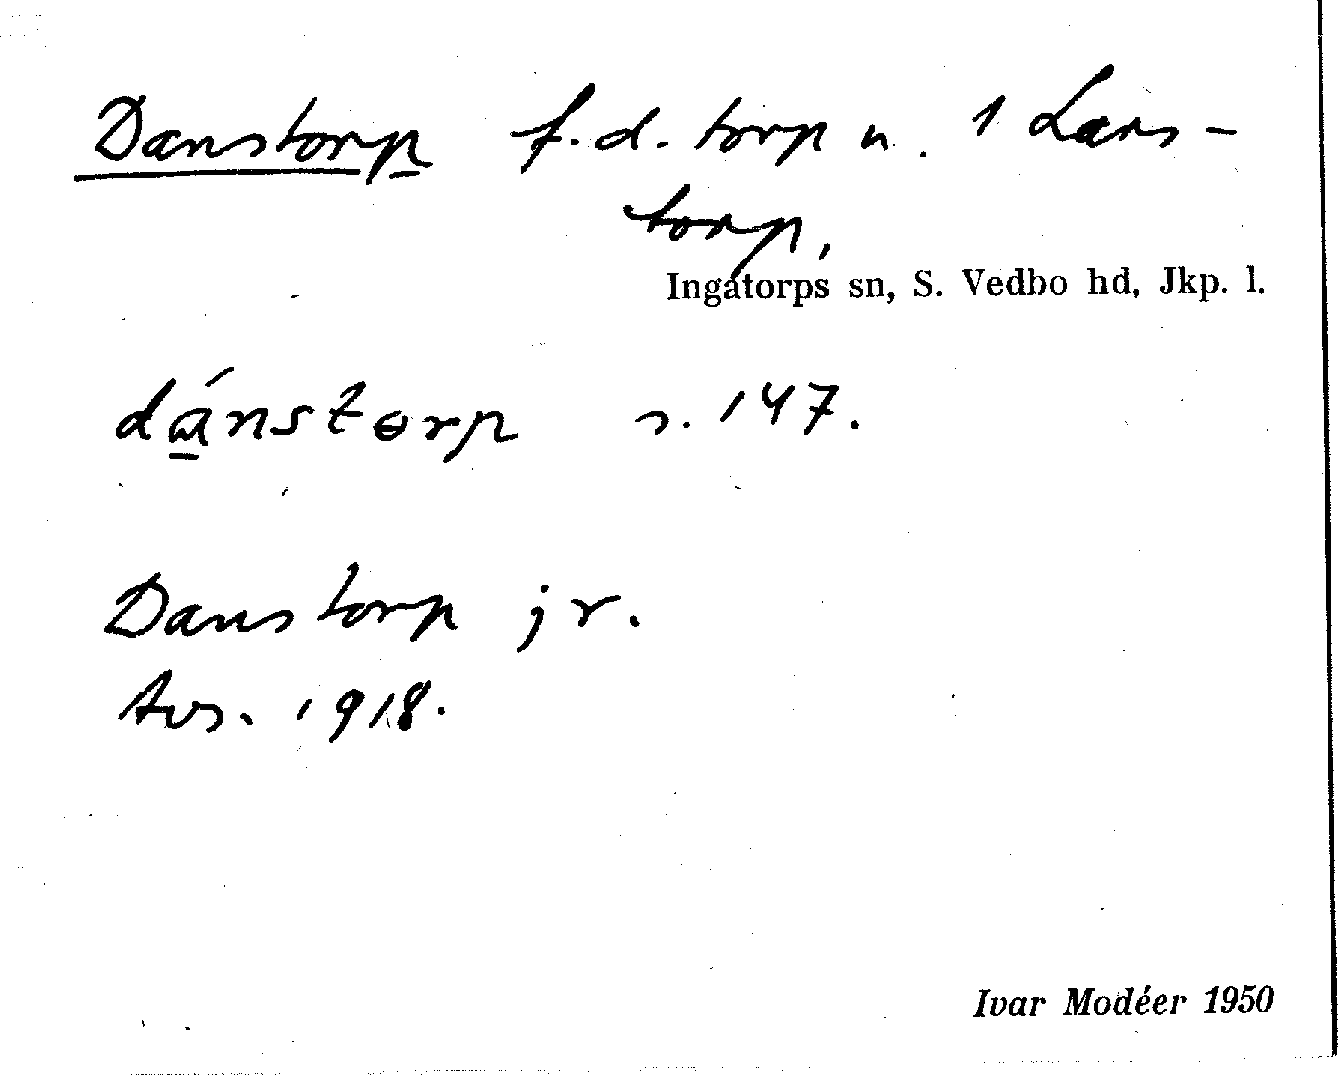 Danstorp f.d. torp u. 1 Lars-
torp,
Ingatorps sn, S. Vedbo hd, Jkp. l.
dánstorp s. 147.
Danstorp jr.
Avs. 1918.
Ivar Modéer 1950